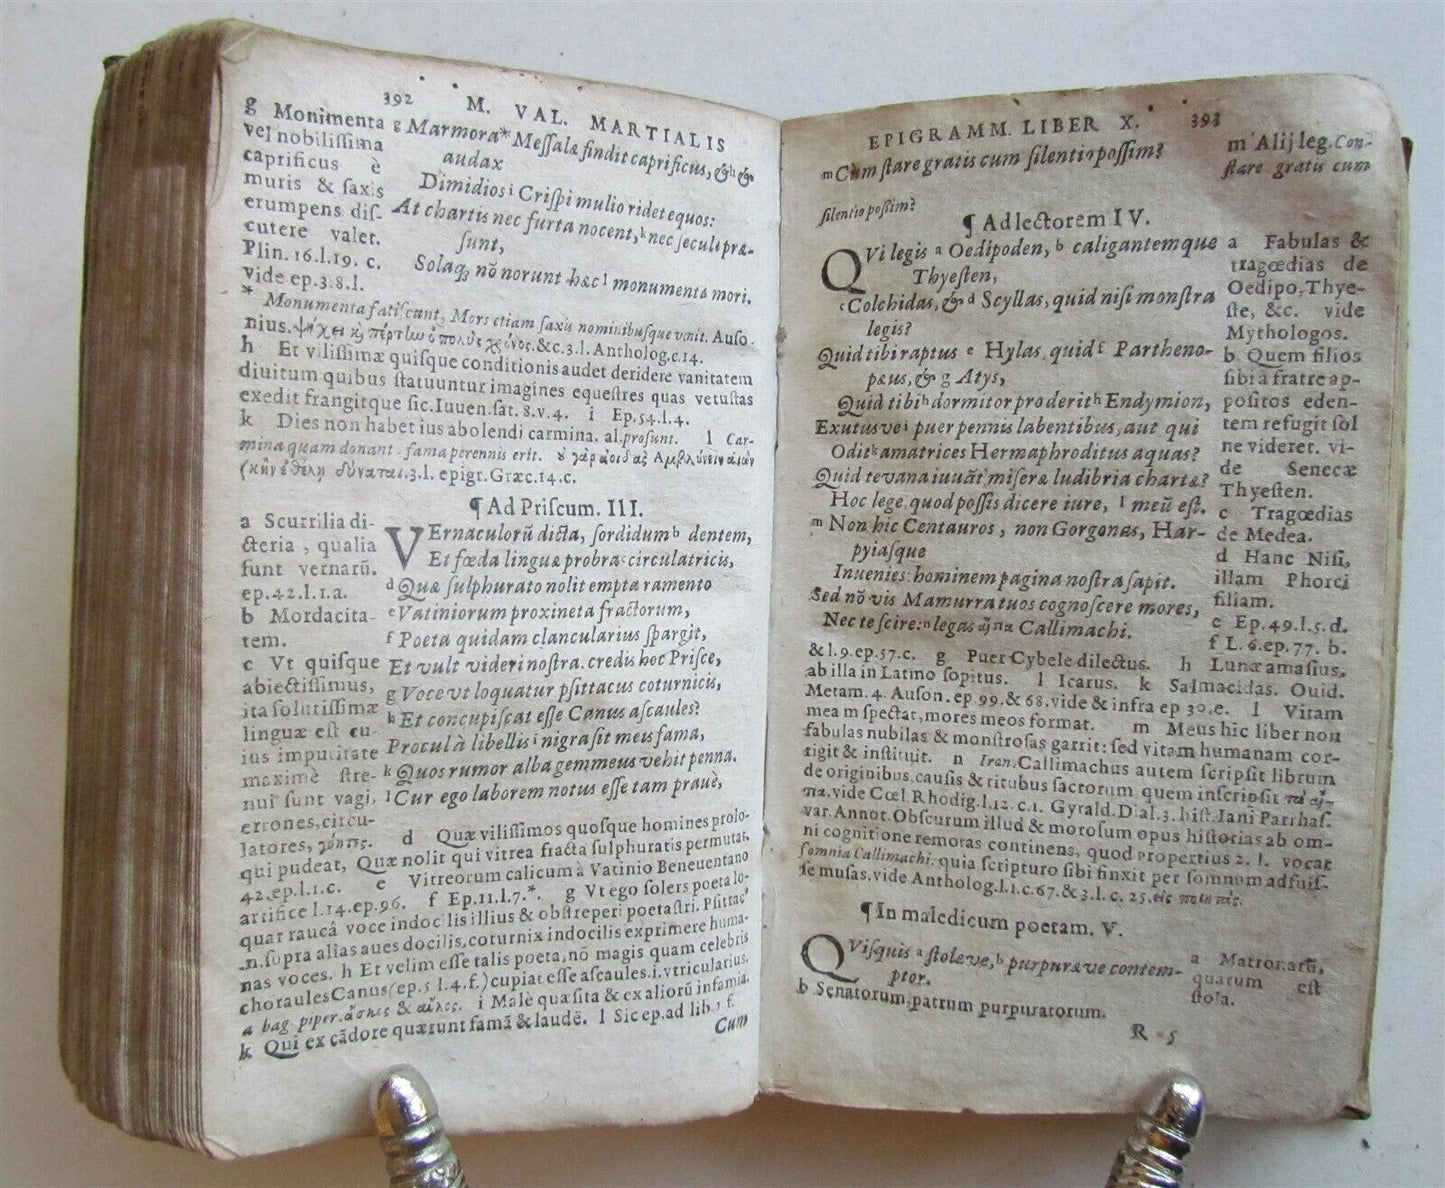 392 M. VAL. MARTIALIS
g Monimenta
vel nobilissima
caprificus è
muris & saxis
erumpens dis-
cutere valet.
Plin. 16. l. 19. c.
vide ep. 3. 8. l.
g Marmora* Messalæ findit caprificus, & h &
audax
Dimidios i Crispi mulio ridet equos:
At chartis nec furta nocent, k nec secula præ-
sunt,
Solaq; nō norunt hæc l monumenta mori.
* Monumenta fatiscunt, Mors etiam saxis nominibusque venit. Auso-
nius. &c. 3. l. Antholog. c. 14.
h Et vilissimæ quisque conditionis audet deridere vanitatem
diuitum quibus statuuntur imagines equestres quas vetustas
exedit frangitque sic. Iuuen. sat. 8. v. 4. i Ep. 54. l. 4.
k Dies non habet ius abolendi carmina. al. prosunt. l Car-
mina quam donant fama perennis erit.
3. l. epigr. Græc. 14. c.
¶ Ad Priscum. III.
a Scurrilia di-
cteria, qualia
sunt vernarū.
ep. 42. l. 1. a.
b Mordacita-
tem.
c Vt quisque
abiectissimus,
ita solutissimæ
linguæ est cu-
ius impuritate
maximè stre-
nui sunt vagi,
errones, circu-
latores, γόητες.
VErnaculorū dicta, sordidum b dentem,
Et fœda linguæ probra c circulatricis,
d Quæ sulphurato nolit empta ramento
e Vatiniorum proxineta fractorum,
f Poeta quidam clancularius spargit,
Et vult videri nostra. credis hoc Prisce,
g Voce vt loquatur psittacus coturnicis,
h Et concupiscat esse Canus ascaules?
Procul à libellis i nigra sit meis fama,
k Quos rumor alba gemmeus vehit penna.
l Cur ego laborem notus esse tam prauè,
d Quæ vilissimos quosque homines prolo-
qui pudeat, Quæ nolit qui vitrea fracta sulphuratis permutat,
42. ep. l. 1. c. e Vitreorum calicum à Vatinio Beneuentano
artifice l. 14. ep. 96. f Ep. 11. l. 7. *. g Vt ego solers poeta lo-
quar raucâ voce indocilis illius & obstreperi poetastri. Psittac'
n. supra alias aues docilis, coturnix indocilis exprimere huma-
nas voces. h Et velim esse talis poeta, nō magis quam celebris
choraules Canus (ep. 5 l. 4. f.) cupiat esse ascaules. i. vtricularius.
a bag piper. ἀσκὸς & αὖλος. i Malè quæsita & ex aliorū infamia.
k Qui ex cādore quærunt famā & laudē. l Sic ep. ad lib. 1. f.
Cum
EPIGRAMM. LIBER X. 393
m Cum stare gratis cum silentio possim?
m Alij leg. Con-
stare gratis cum
silentio possim?
¶ Ad lectorem IV.
QVi legis a Oedipoden, b caligantemque
Thyesten,
c Colchidas, & d Scyllas, quid nisi monstra
legis?
Quid tibi raptus e Hylas, quid f Partheno-
pæus, & g Atys,
Quid tibi h dormitor proderit h Endymion,
Exutusve i puer pennis labentibus, aut qui
Odit k amatrices Hermaphroditus aquas?
Quid te vana iuuāt miseræ ludibria chartæ?
Hoc lege, quod possis dicere iure, l meū est.
m Non hic Centauros, non Gorgonas, Har-
pyiasque
Inuenies: hominem pagina nostra sapit.
Sed nō vis Mamurra tuos cognoscere mores,
Nec te scire: n legas αἴτια Callimachi.
a Fabulas &
tragœdias de
Oedipo, Thye-
ste, &c. vide
Mythologos.
b Quem filios
sibi à fratre ap-
positos eden-
tem refugit sol
ne videret. vi-
de Senecæ
Thyesten.
c Tragœdias
de Medea.
d Hanc Nisi,
illam Phorci
filiam.
e Ep. 49. l. 5. d.
f L. 6. ep. 77. b.
& l. 9. ep. 57. c. g Puer Cybele dilectus. h Lunæ amasius,
ab illa in Latmo sopitus. i Icarus. k Salmacidas. Ouid.
Metam. 4. Auson. ep 99. & 68. vide & infra ep 30. e. l Vitam
mea m spectat, mores meos format. m Meus hic liber non
fabulas nubilas & monstrosas garrit: sed vitam humanam cor-
rigit & instituit. n Iron. Callimachus autem scripsit librum
de originibus, causis & ritubus sacrorum, quem inscripsit τὰ αἴ-
τια. vide Cœl. Rhodig. l. 12. c. 1. Gyrald. Dial. 3. hist. Iani Parrhas.
var. Annot. Obscurum illud & morosum opus historias ab om-
ni cognitione remotas continens, quod Propertius 2. l. vocat
somnia Callimachi. quia scripturo sibi finxit per somnum adfuis-
se musas. vide Antholog. l. 1. c. 67. & 3. l. c. 25.
¶ In maledicum poetam. V.
QVisquis a stolæve, b purpuræve contem-
ptor.
a Matronarū,
quarum est
stola.
b Senatorum, patrum purpuratorum.
R 5